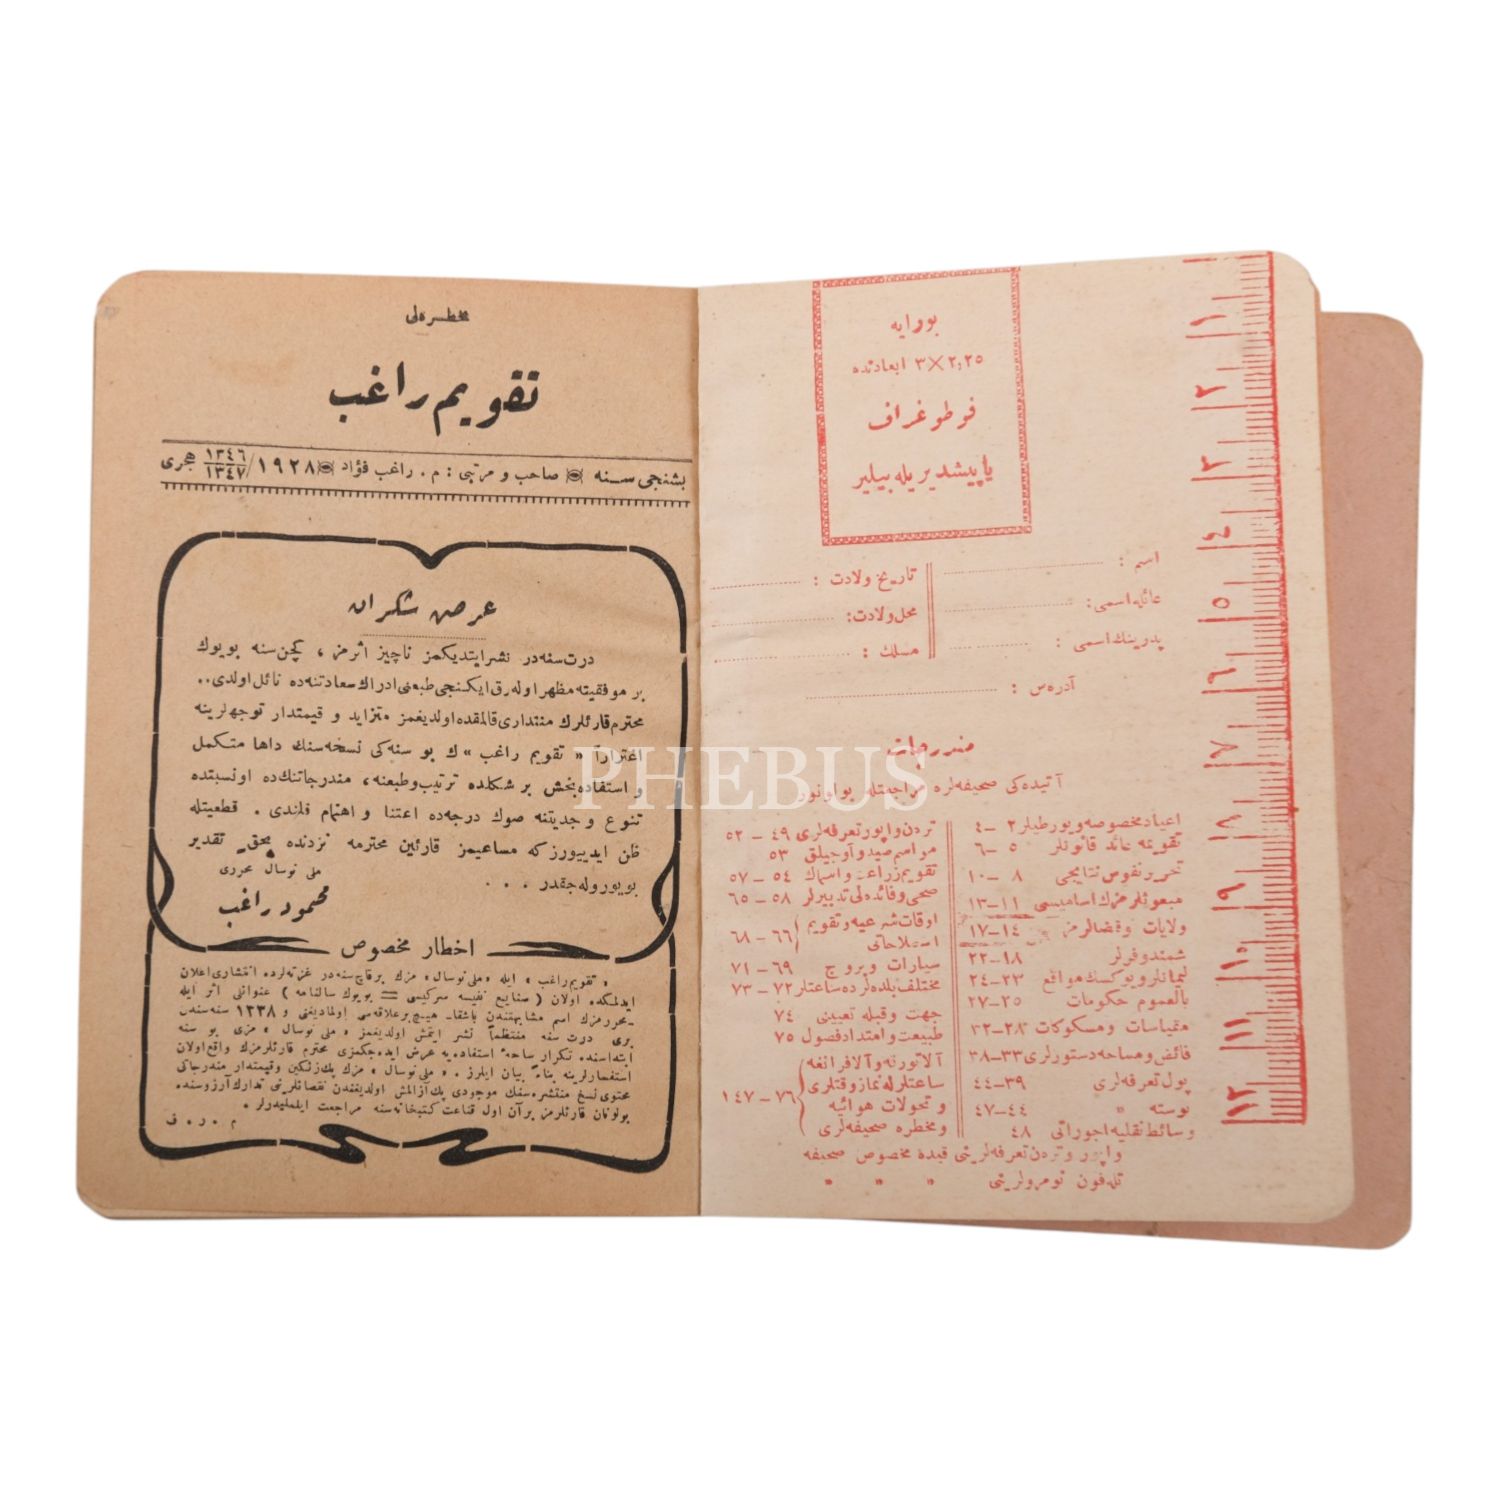 مخطره‌لی
تقویم راغب
بشنجی سنه صاحب و مرتبی : م . راغب فؤاد ١٩٢٨/١٣٤٦ ١٣٤٧ هجری
عرض شکران
درت سنه‌در نشر ایتدیکمز ناچیز اثرمز ، کچن سنه بویوك
بر موفقیته مظهر اوله‌رق ایکنجی طبعنی ادراك سعادتنه‌ده نائل اولدی..
محترم قارئلرك منتداری قالمقده اولدیغمز متزاید و قیمتدار توجهلرینه
اغتراراً « تقویم راغب » ك بو سنه‌کی نسخه‌سنك داها متکمل
و استفاده‌بخش بر شکلده ترتیب و طبعنه ، مندرجاتنك‌ده اونسبتده
تنوع و جدیتنه صوك درجه‌ده اعتنا و اهتمام قلندی . قطعیتله
ظن ایدییورزکه مساعیمز قارئین محترمه نزدنده بحق تقدیر
بویوروله‌جقدر . . .
ملی نوسال محرری
محمود راغب
اخطار مخصوص
« تقویم راغب » ایله « ملی نوسال » مزك برقاچ سنه‌در غزته‌لرده انتشاری اعلان
ایدلمکده اولان ( صنایع نفیسه سرکیسی = بویوك سالنامه ) عنوانلی اثر ایله
محررمزك اسم مشابهتندن باشقا هیچ برعلاقه‌سی اولمادیغنی و ١٣٣٨ سنه‌سندن
بری درت سنه منتظماً نشر ایتمش اولدیغمز « ملی نوسال » مزی بو سنه
ابتداسنده تکرار ساحهٔ استفاده‌یه عرض ایده‌جکمزی محترم قارئلرمزك واقع اولان
استفسارلرینه بناءً بیان ایلرز . « ملی نوسال » مزك پك زنکین وقیمتدار مندرجاتی
محتوی نسخ منتشره‌سنك موجودی پك آزالمش اولدیغندن نقصانلرینی تدارك آرزوسنده
بولونان قارئلرمز برآن اول قناعت کتبخانه‌سنه مراجعت ایلملیدرلر .
م . ر . ف
بورایه
٢,٢٥ × ٣ ابعادنده
فوطوغراف
یاپیشدیریله‌بیلیر
اسم :
عائله اسمی :
پدرینك اسمی :
تاریخ ولادت :
محل ولادت :
مسلك :
آدره‌س :
مندرجات
آتیده‌کی صحیفه‌لره مراجعتله بولونور
اعیاد مخصوصه و یورطیلر ٢-٤
تقویمه عائد قانونلر ٥-٦
تحریر نفوس نتایجی ٨-١٠
مبعوثلرمزك اسامیسی ١١-١٣
ولایات و قضالرمز ١٤-١٧
شمندوفرلر ١٨-٢٢
لیمانلر و یوکسك مواقع ٢٣-٢٤
بالعموم حکومات ٢٥-٢٧
مقیاسات و مسکوکات ٢٨-٣٢
فائض و مساحه دستورلری ٣٣-٣٨
پول تعرفه‌لری ٣٩-٤٤
پوسته " ٤٤-٤٧
وسائط نقلیه اجوراتی ٤٨
ترن و اپور تعرفه‌لری ٤٩-٥٢
مراسم صید و آوجیلق ٥٣
تقویم زراعت و اسماك ٥٤-٥٧
صحی و فائده‌لی تدبیرلر ٥٨-٦٥
اوقات شرعیه و تقویم اصطلاحاتی ٦٦-٦٨
سیارات و بروج ٦٩-٧١
مختلف بلده‌لرده ساعتلر ٧٢-٧٣
جهت و قبله تعیینی ٧٤
طبیعت و امتداد فصول ٧٥
آلاتورقه و آلافرانغه
ساعتلرله نماز وقتلری
و تحولات هوائیه
و مخطره صحیفه‌لری ٧٦-١٤٧
واپور و ترن تعرفه‌لرینی قیده مخصوص صحیفه
تله‌فون نومرولرینی " " "
١
٢
٣
٤
٥
٦
٧
٨
٩
١٠
١١
١٢
PHEBUS